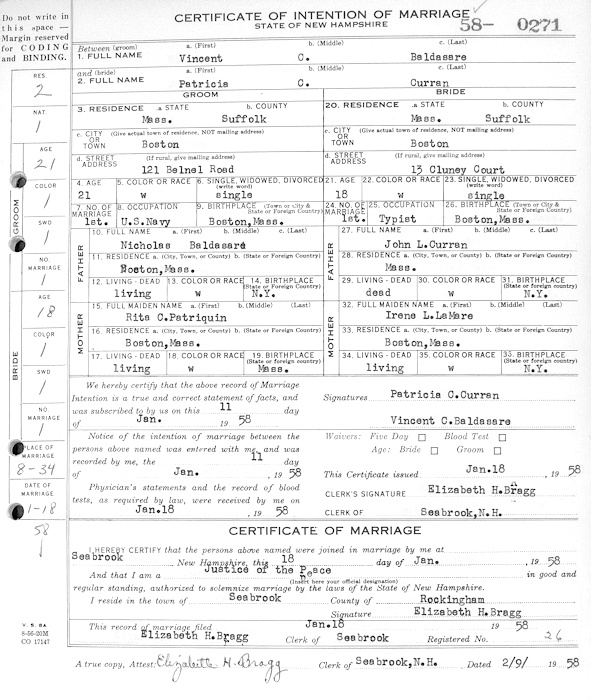 Do not write in
this space —
Margin reserved
for CODING
and BINDING.
CERTIFICATE OF INTENTION OF MARRIAGE
STATE OF NEW HAMPSHIRE
58- 0271
Between (groom) a. (First) b. (Middle) c. (Last)
1. FULL NAME Vincent C. Baldasare
and (bride) a. (First) b. (Middle) c. (Last)
2. FULL NAME Patricia C. Curran
GROOM BRIDE
3. RESIDENCE .a STATE b. COUNTY 20. RESIDENCE .a STATE b. COUNTY
Mass. Suffolk Mass. Suffolk
c. CITY OR TOWN (Give actual town of residence, NOT mailing address) Boston c. CITY OR TOWN (Give actual town of residence, NOT mailing address) Boston
d. STREET ADDRESS (If rural, give mailing address) 121 Belnel Road d. STREET ADDRESS (If rural, give mailing address) 13 Cluney Court
4. AGE 5. COLOR OR RACE 6. SINGLE, WIDOWED, DIVORCED (write word) 21. AGE 22. COLOR OR RACE 23. SINGLE, WIDOWED, DIVORCED (write word)
21 w single 18 w single
7. NO. OF MARRIAGE 8. OCCUPATION 9. BIRTHPLACE (Town or City & State or Foreign Country) 24. NO. OF MARRIAGE 25. OCCUPATION 26. BIRTHPLACE (Town or City & State or Foreign Country)
1st. U.S.Navy Boston,Mass. 1st. Typist Boston,Mass.
FATHER 10. FULL NAME a. (First) b. (Middle) c. (Last) FATHER 27. FULL NAME a. (First) b. (Middle) c. (Last)
Nicholas Baldasare John L.Curran
11. RESIDENCE a. (City, Town, or County) b. (State or Foreign Country) 28. RESIDENCE a. (City, Town, or County) b. (State or Foreign Country)
Boston,Mass. Mass.
12. LIVING - DEAD 13. COLOR OR RACE 14. BIRTHPLACE (State or Foreign Country) 29. LIVING - DEAD 30. COLOR OR RACE 31. BIRTHPLACE (State or Foreign Country)
living w N.Y. dead w N.Y.
MOTHER 15. FULL MAIDEN NAME a. (First) b.(Middle) (Last) MOTHER 32. FULL MAIDEN NAME a. (First) b.(Middle) (Last)
Rita C.Patriquin Irene L.LaMare
16. RESIDENCE a. (City, Town or County) b. (State or Foreign Country) 33. RESIDENCE a. (City, Town or County) b. (State or Foreign Country)
Boston,Mass. Boston,Mass.
17. LIVING - DEAD 18. COLOR OR RACE 19. BIRTHPLACE (State or Foreign Country) 34. LIVING - DEAD 35. COLOR OR RACE 33. BIRTHPLACE (State or Foreign Country)
living w Mass. living w N.Y.
We hereby certify that the above record of Marriage
Intention is a true and correct statement of facts, and
was subscribed to by us on this 11 day
of Jan. 19 58
Signatures Patricia C.Curran
Vincent C.Baldasare
Notice of the intention of marriage between the
persons above named was entered with me, and was
recorded by me, the 11 day
of Jan. , 19 58
Waivers: Five Day Blood Test
Age: Bride Groom
Physician's statements and the record of blood
tests, as required by law, were received by me on
Jan.18 , 19 58
This Certificate issued Jan.18 , 19 58
CLERK'S SIGNATURE Elizabeth H.Bragg
CLERK OF Seabrook,N.H.
CERTIFICATE OF MARRIAGE
I HEREBY CERTIFY that the persons above named were joined in marriage by me at
Seabrook New Hampshire, this 18 day of Jan. , 19 58
And that I am a Justice of the Peace in good and
(Insert here your official designation)
regular standing, authorized to solemnize marriage by the laws of the State of New Hampshire.
I reside in the town of Seabrook County of Rockingham
Signature Elizabeth H.Bragg
This record of marriage filed Jan.18 19 58
Elizabeth H.Bragg Clerk of Seabrook Registered No. 26
A true copy, Attest: Elizabeth H. Bragg Clerk of Seabrook,N.H. Dated 2/9/ , 19 58
RES
2
NAT
1
AGE
21
COLOR
1
SWD
1
NO.
MARRIAGE
1
GROOM
AGE
18
COLOR
1
SWD
1
NO
MARRIAGE
1
BRIDE
PLACE OF
MARRIAGE
8-34
DATE OF
MARRIAGE
1-18
58
1
V. S. 8A
8-56-20M
CO 17147